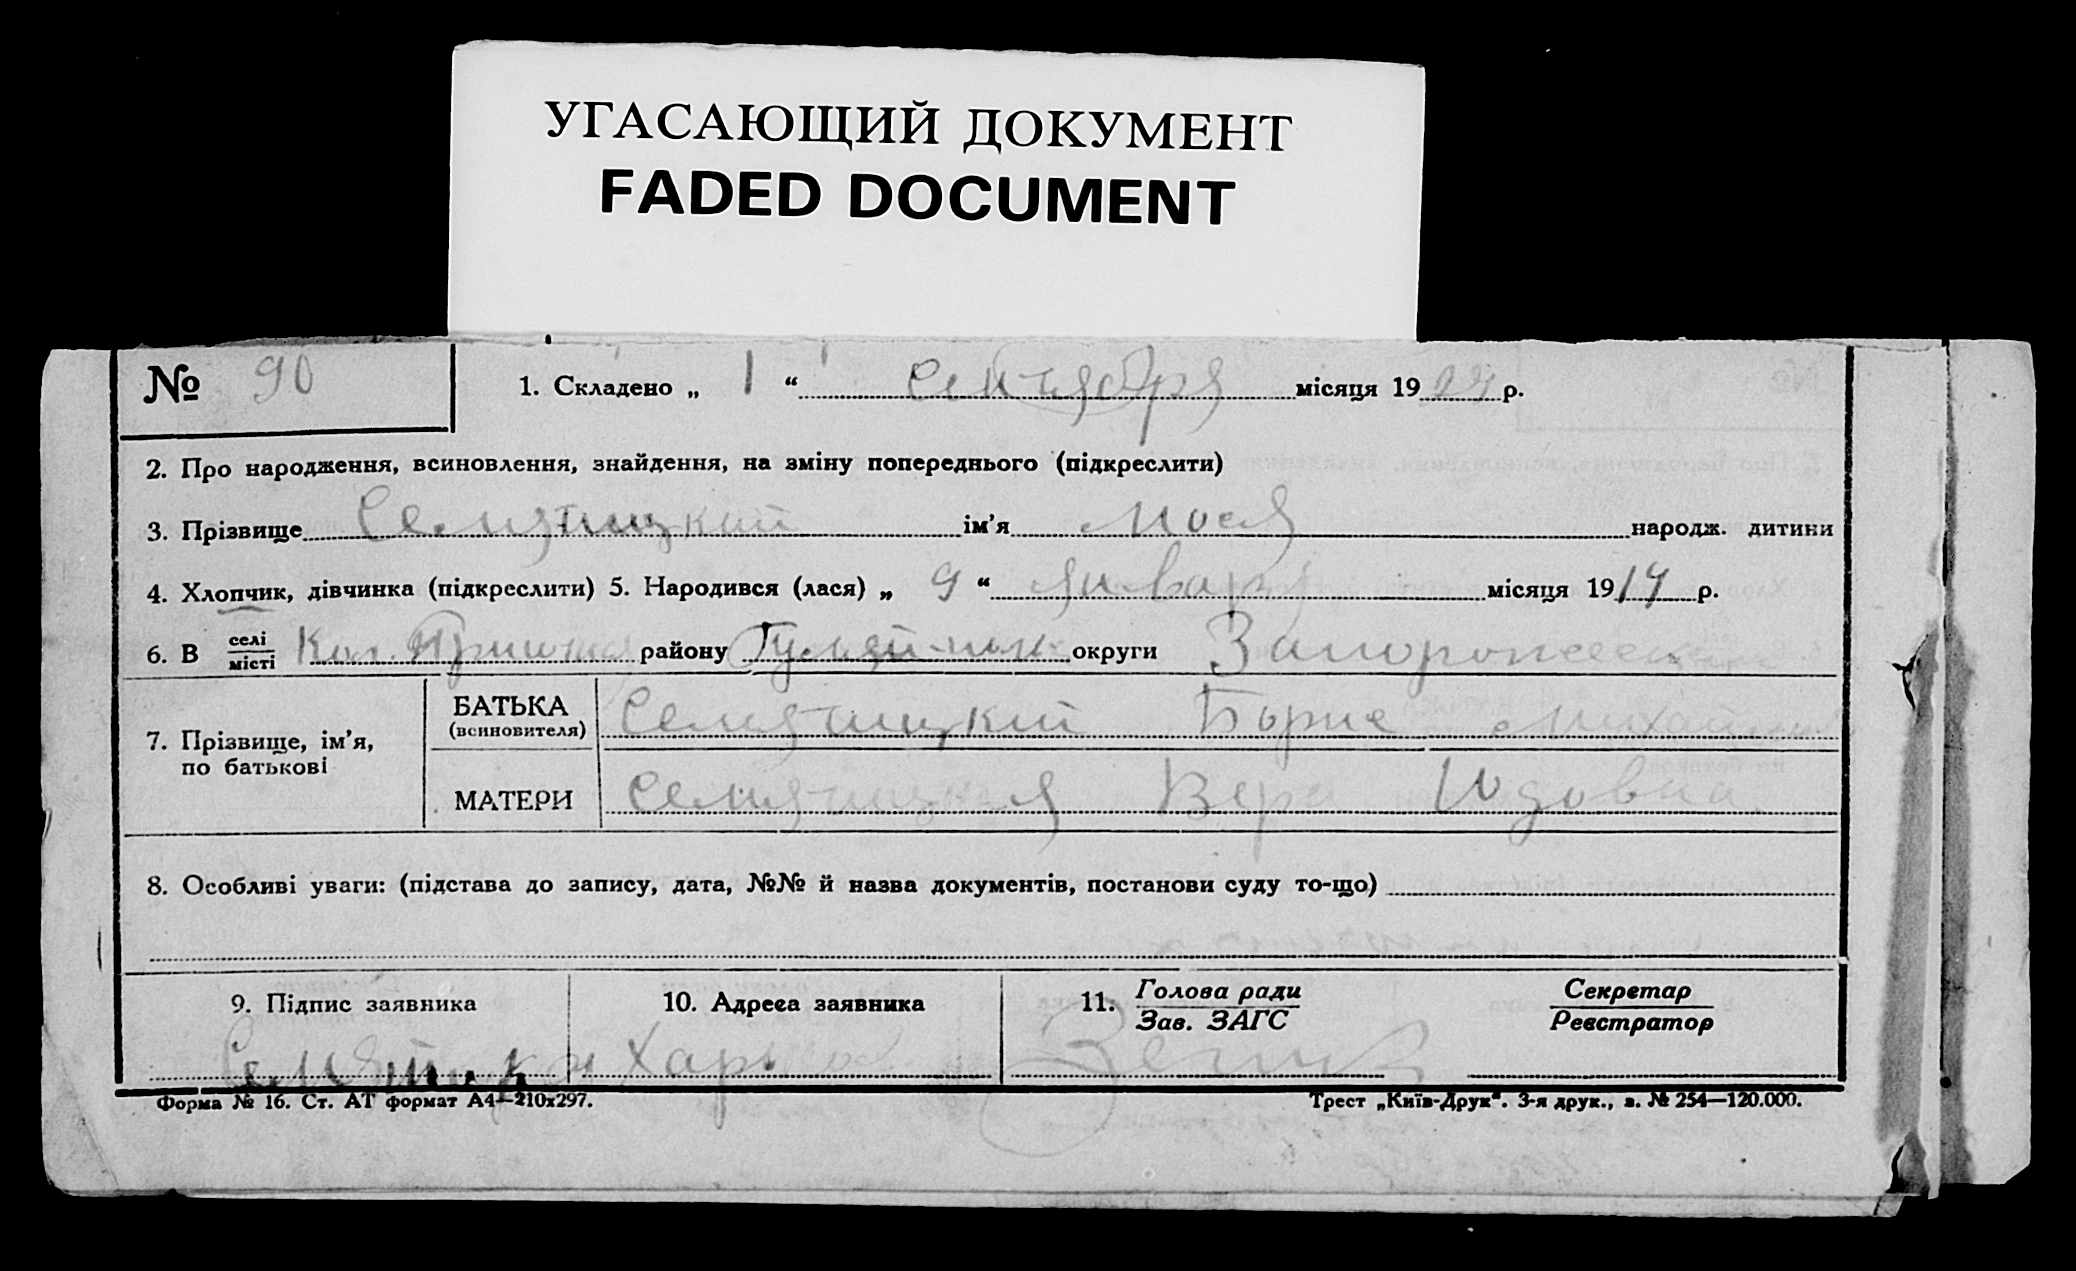 УГАСАЮЩИЙ ДОКУМЕНТ
FADED DOCUMENT
№ 90
1. Складено „ 1 “ Сентября місяця 19 р.
2. Про народження, всиновлення, знайдення, на зміну попереднього (підкреслити)
3. Прізвище Семятицкий ім’я Мося народж. дитини
4. Хлопчик, дівчинка (підкреслити) 5. Народився (лася) „ 9 “ Января місяця 1914 р.
6. В селі/місті Кол. району Гуляй-поль округи Запорожской
7. Прізвище, ім’я, по батькові
БАТЬКА (всиновителя) Семятицкий Борис Михайлов
МАТЕРИ Семятицкая Вера Юдовна
8. Особливі уваги: (підстава до запису, дата, №№ й назва документів, постанови суду то-що)
9. Підпис заявника
10. Адреса заявника
11. Голова ради / Зав. ЗАГС
Секретар / Реєстратор
Семятицки Харьков
Форма № 16. Ст. АТ формат А4—210х297.
Трест „Київ-Друк“. 3-я друк., з. № 254—120.000.